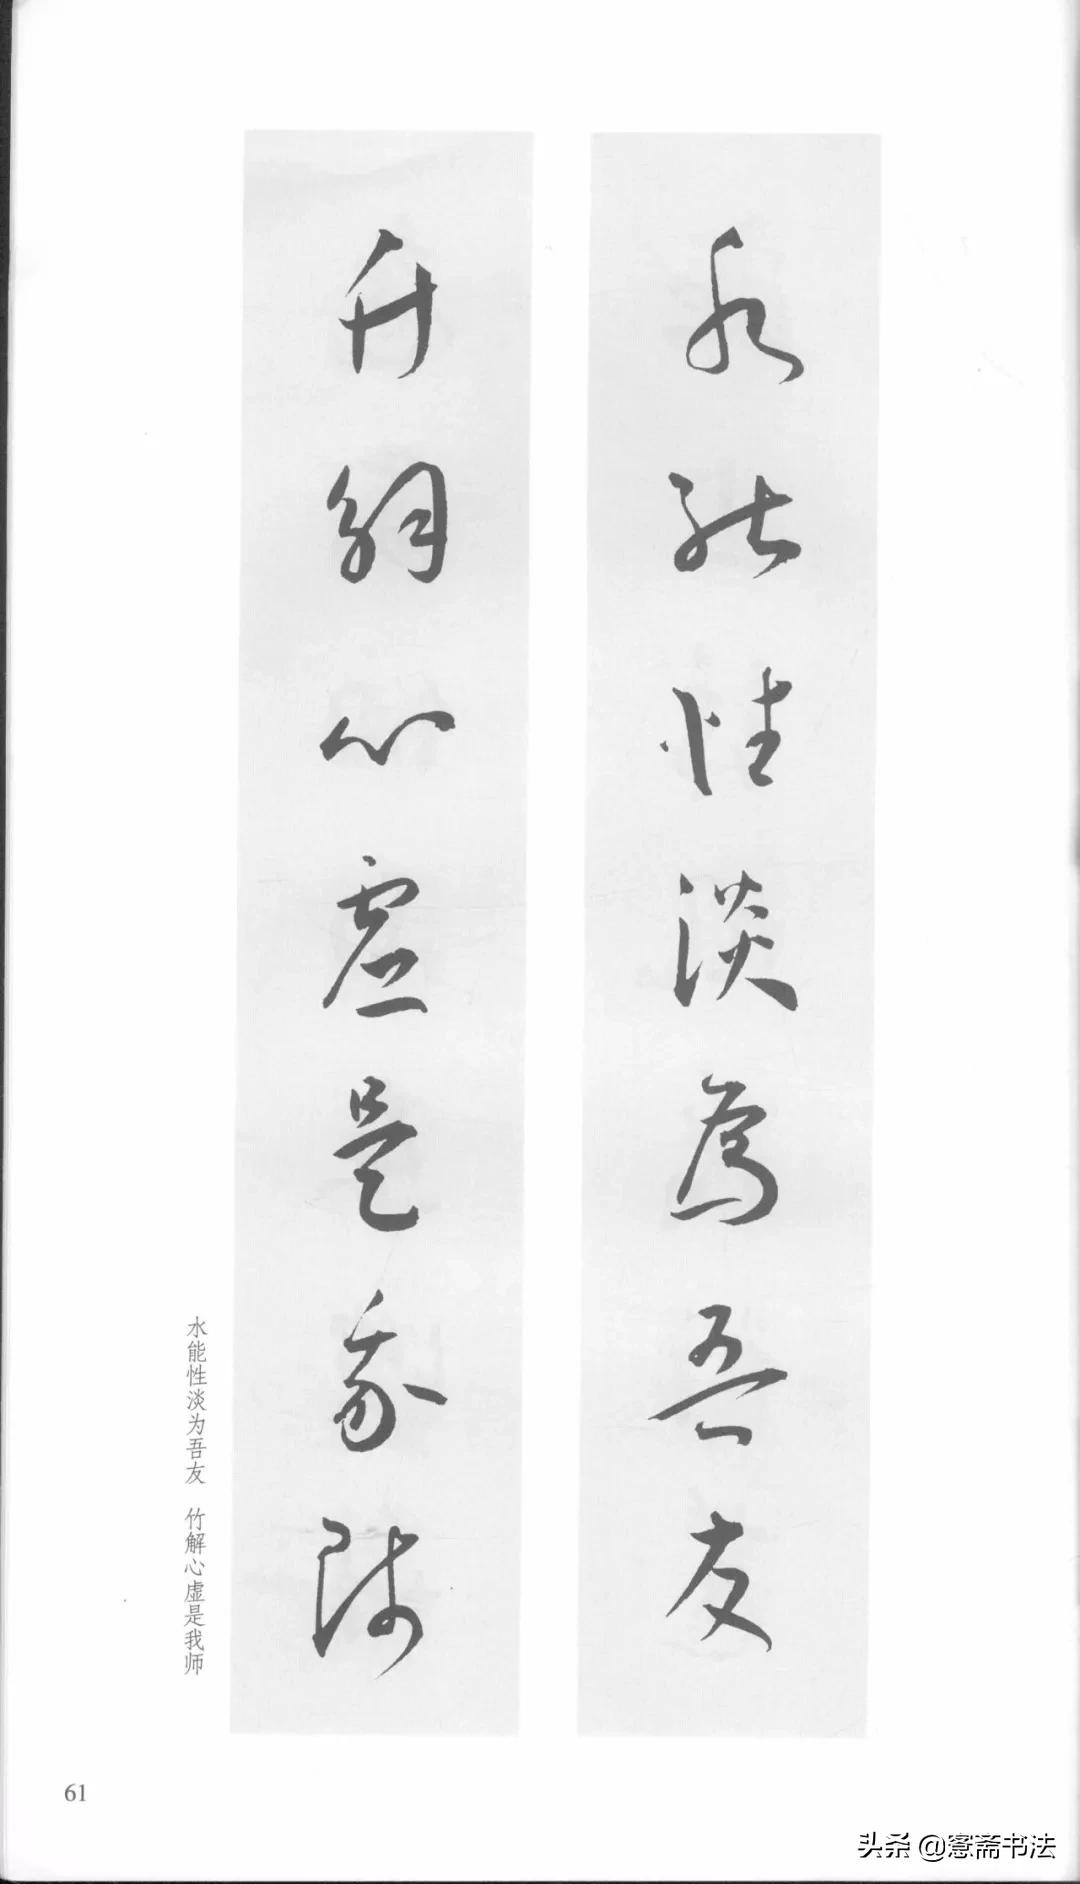 水能性淡為吾友
竹解心虚是我師
水能性淡为吾友 竹解心虚是我师
61
头条 @窓斋书法